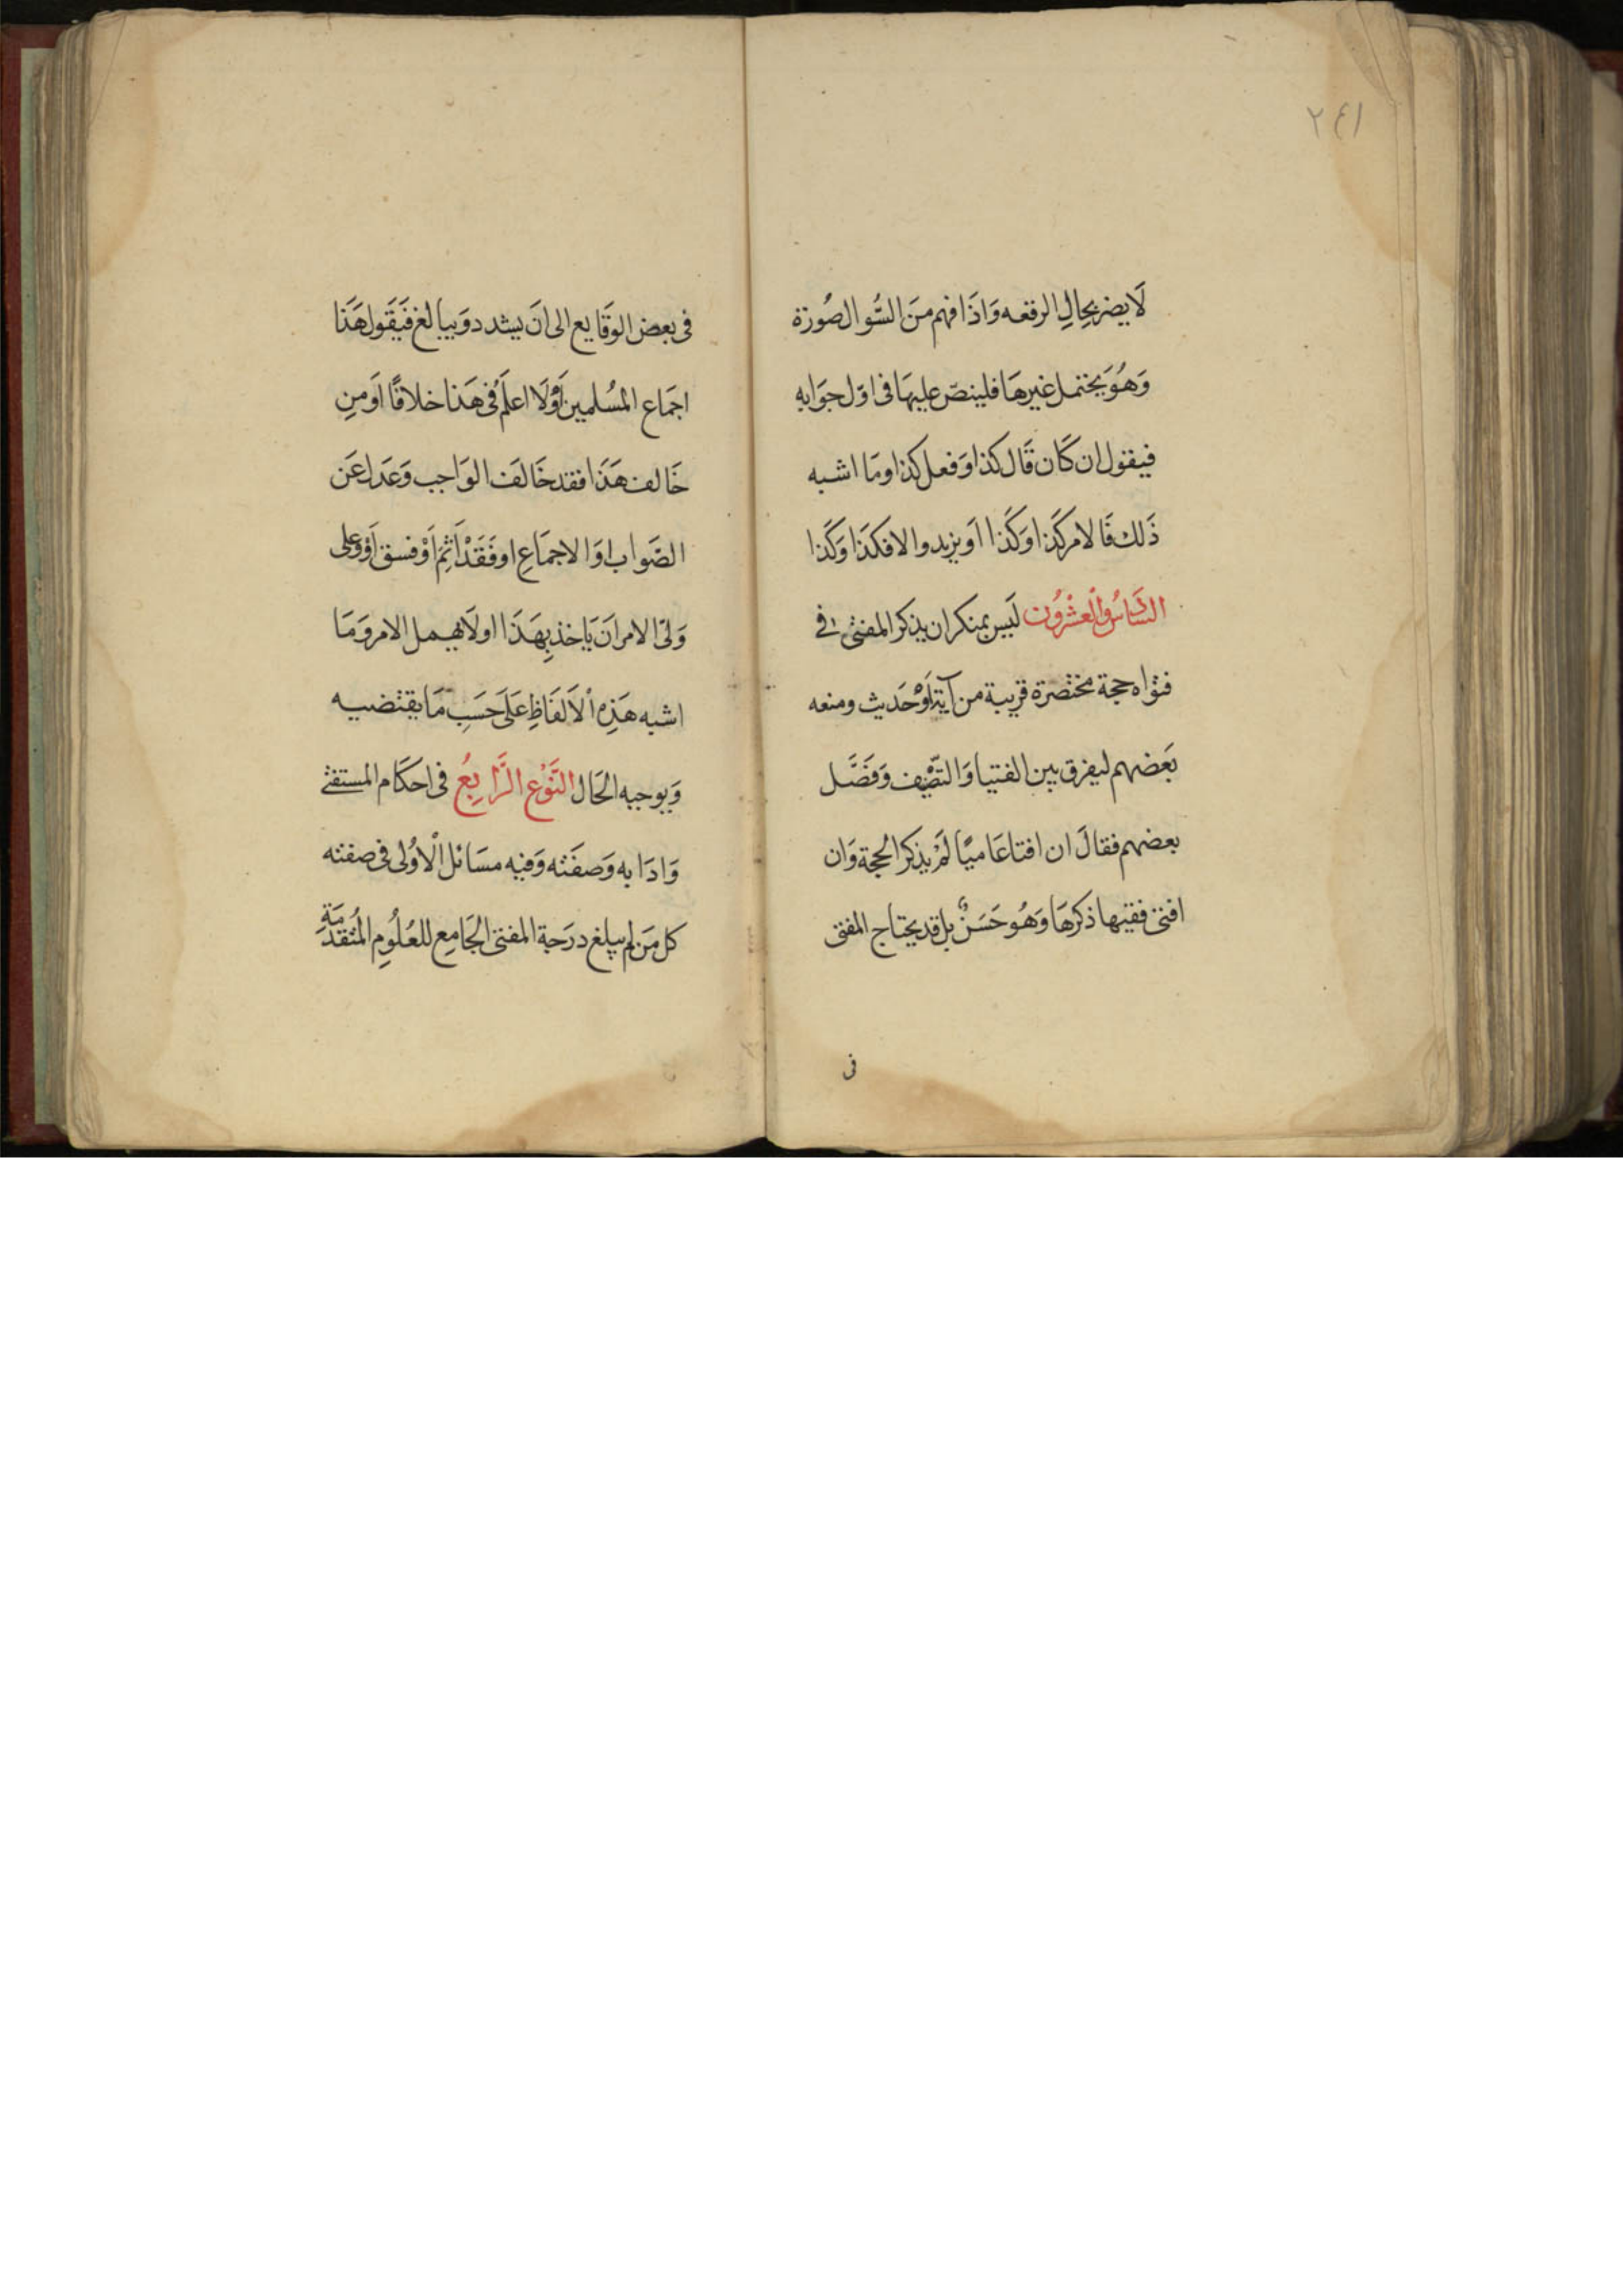 ٢٤١
لَا يضر بحِالِ الرقعه وَاذَا فهم مَنَ السُّوال صُورَة
وَهُوَ يحتمل غيرهَا فلينصّ عليهَا فى اوّل جوَابه
فيقول ان كَان قَال كذا وَفعل كذا ومَا اشبه
ذَلك فَالامر كَذا وَكَذا اَو يزيد والا فكذَا وَكَذا
السَّادسُ وَالْعشْرُون لَيس بمنكر ان يذكر المفتى فى
فتواه حجة مختصرة قريبة من آية اَوْ حَديث ومنعه
بَعَضهم ليفرق بين الفتيا وَالتصْنيف وَفَصَّل
بعضهم فقالَ ان افتا عَاميًا لَمْ يذكر الحجة وَان
افتى فقيها ذكرهَا وَهُو حَسَنٌ بل قد يحتاج المفتى
فى
فى بعض الوقَايع الى انَ يشدد وَيبالغ فَيَقَول هَذَا
اجمَاع المسُلمين اَوْ لَا اعلَمُ فى هَذا خلافًا اَو منِ
خَالف هَذَا فقد خَالفَ الوَاجب وَعَدل عَن
الصَّواب اوَ الاجمَاعِ او فَقَدْ اَثِمَ اَوْ فسق اَوْ وعلى
وَلىّ الامر انَ يَاخذ بِهَذَا او لَا يهمل الامر وَمَا
اشبه هَذِه الْاَلفَاظِ عَلَى حَسَبِ مَا يقتضيه
وَيوجبه الحَال النَّوْع الرَّابِعُ فى احكَام المستفتى
وَادَابه وَصفَته وَفيه مسَائل الْاوُلى فى صفته
كل مَن لم يبلغ درَجة المفتى الجَامِع للعُلُومِ المُتقَدّمَةِ